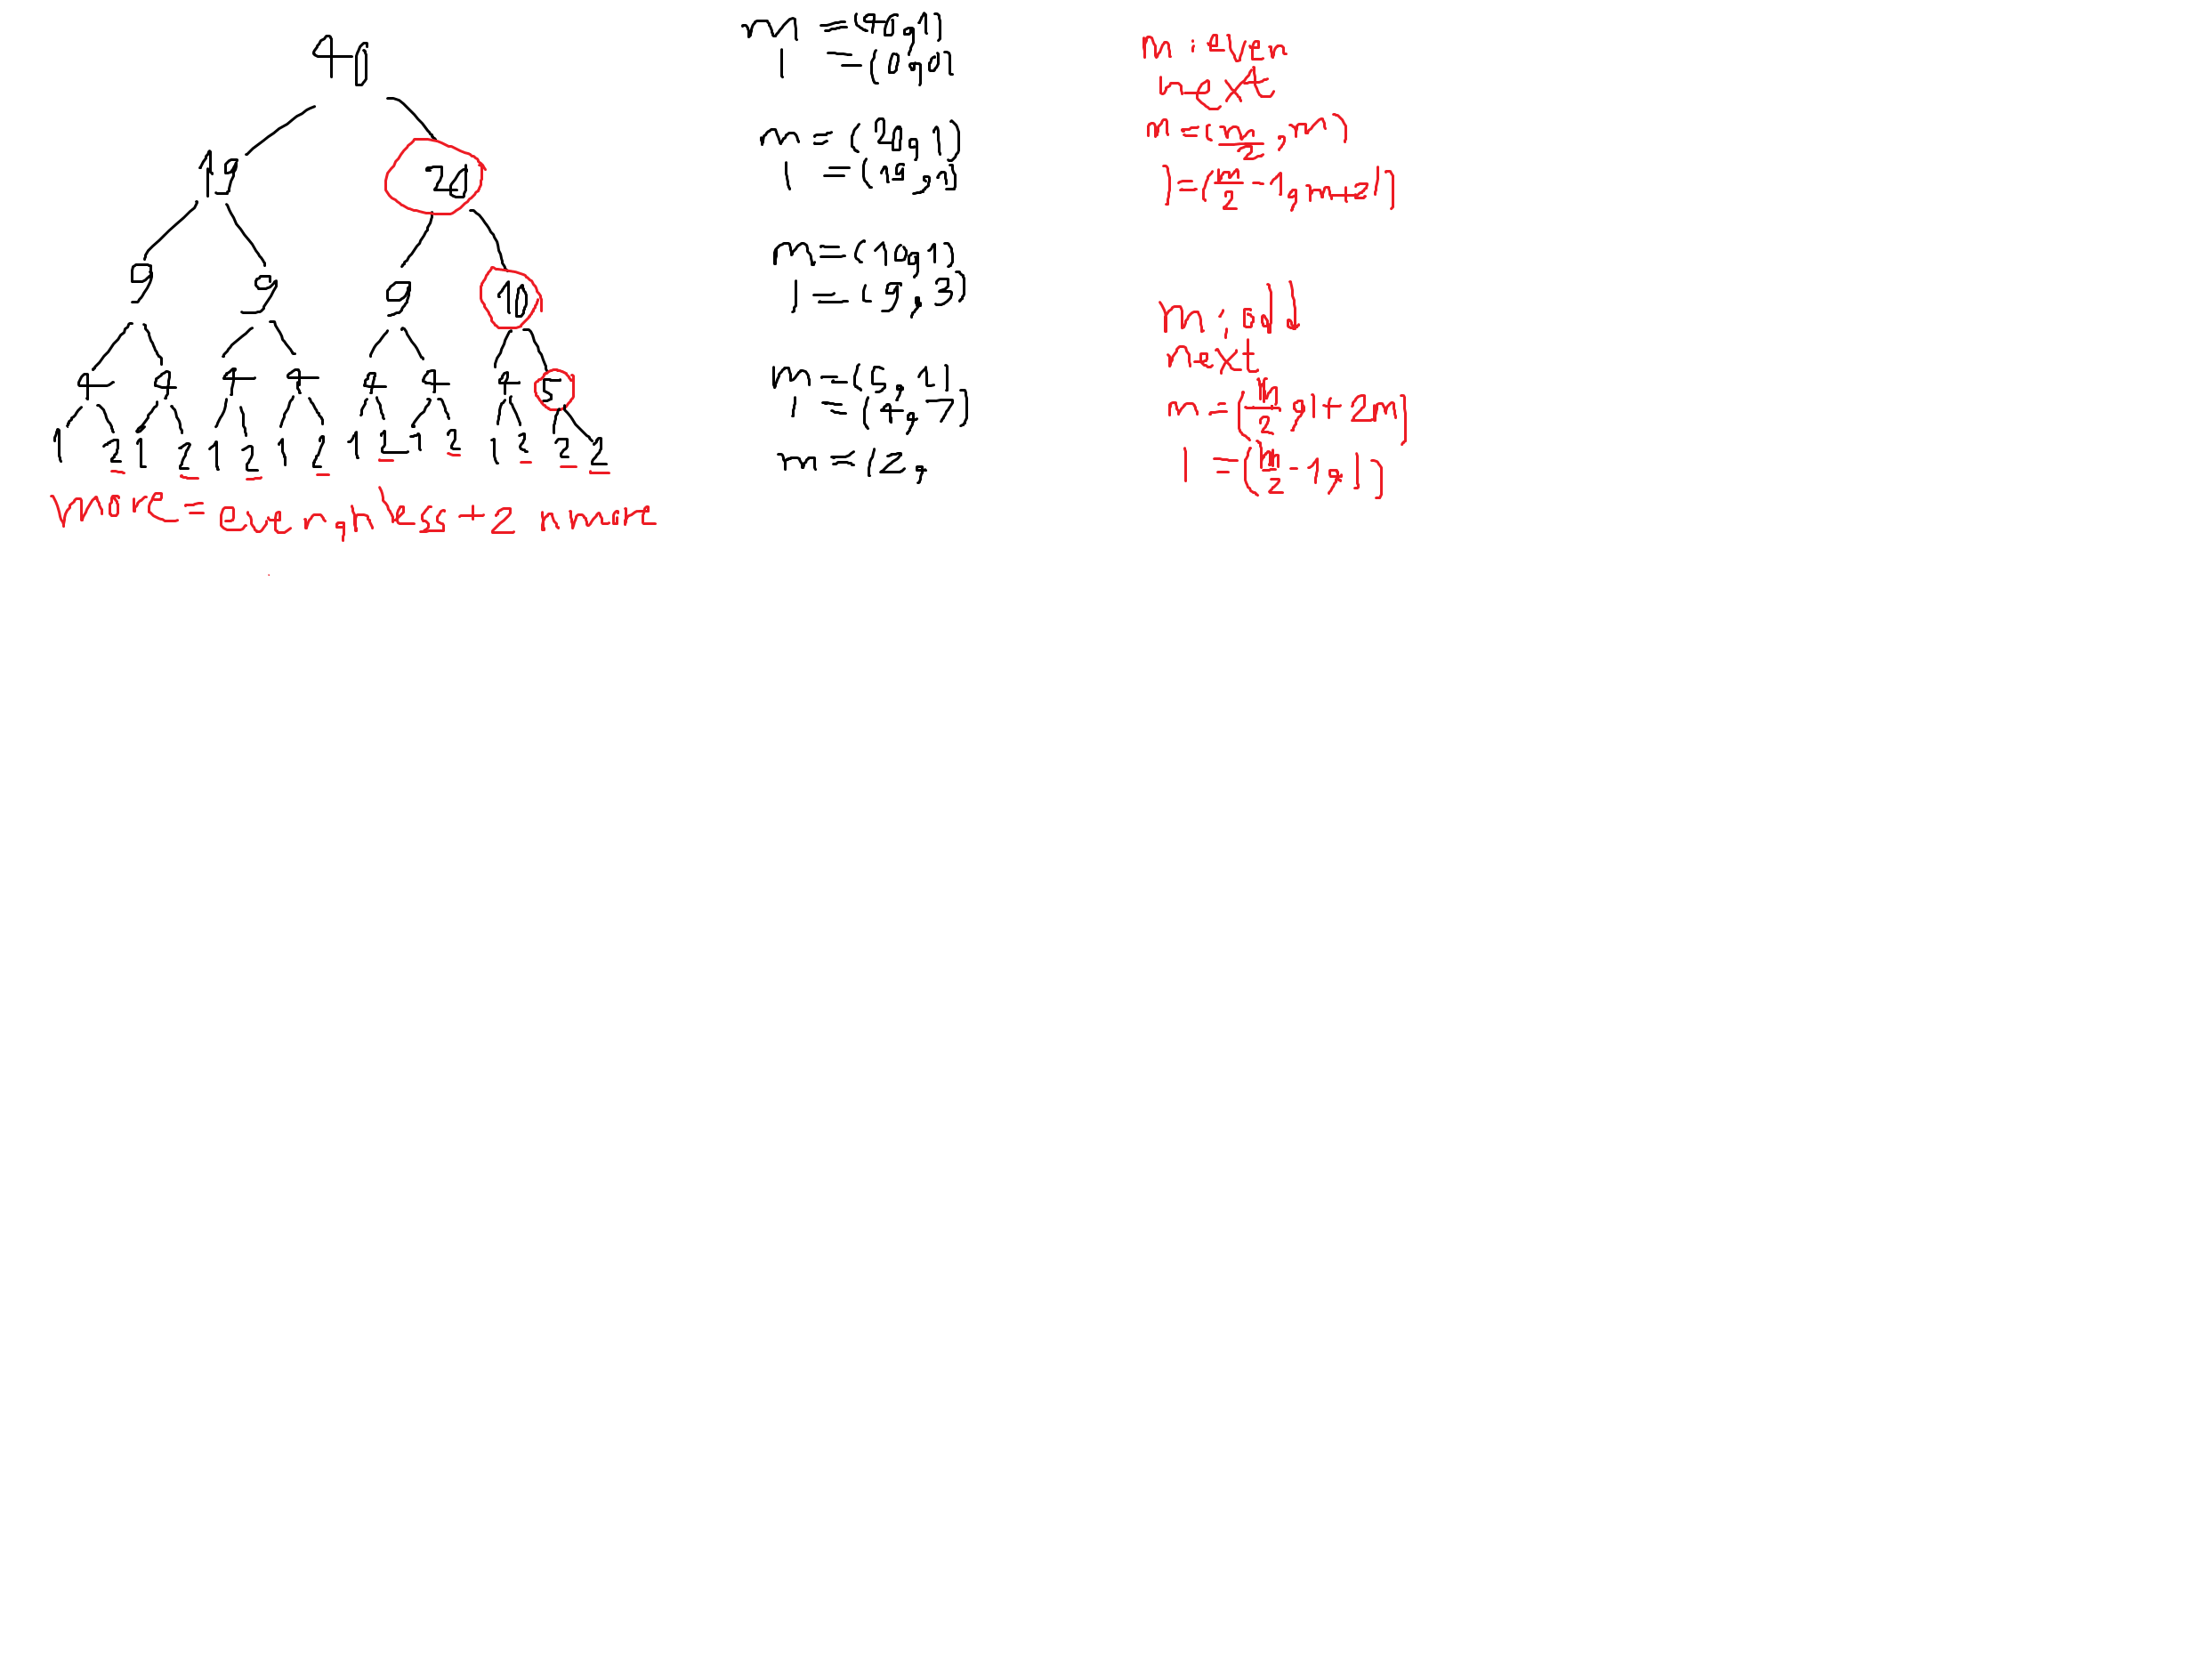 40
19 20
9 9 9 10
4 4 4 4 4 4 4 5
1 2 1 2 1 2 1 2 1 2 1 2 1 2 2 2
more = even, less + 2 nmore
m = (40,1)
l = (0,0)
m = (20,1)
l = (19,1)
m = (10,1)
l = (9,3)
m = (5,1)
l = (4,7)
m = (2,
m : even
next
m = (m/2, m)
l = (m/2 - 1, m+2l)
m : odd
next
m = (m/2, l+2m)
l = (m/2 - 1, l)